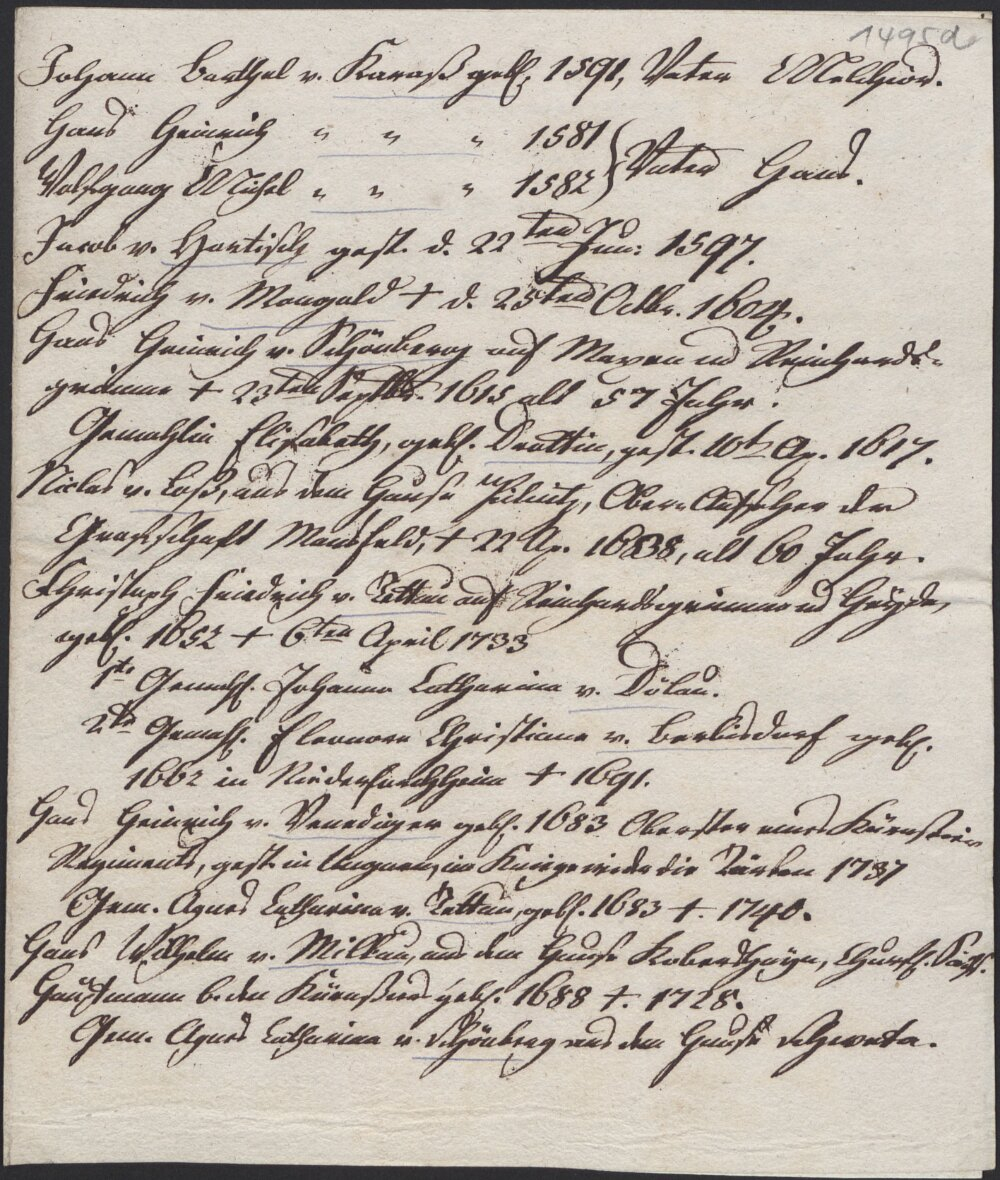 1495d
Johann Barthel v. Karaß geb. 1591, Vater Melchior.
Hans Heinrich " " " 1581
Wolfgang Michel " " " 1582 } Vater Hans.
Jacob v. Hartisch gest. d. 22ten Jun: 1597.
Friedrich v. Mangold + d. 25ten Octbr. 1604.
Hans Heinrich v. Schönberg auf Maxen und Reinhards-
grimma + 23ten Septbr. 1615 alt 57 Jahr.
Gemahlin Elisabeth, geb. gest. 10t Ap. 1617.
Niclas v. Loß, aus dem Hause Pilnitz, Ober-Aufseher der
Grafschaft Mansfeld, + 22 Ap. 1638, alt 60 Jahr.
Christoph Friedrich v. Tettau auf Reinhardsgrimma und
geb. 1652 + 6ten April 1733
1te Gemahl. Johanna Catharina v. Dölau.
2te Gemahl. Eleonora Christiana v. Berbisdorf geb.
1662 in Niederforchheim + 1691.
Hans Heinrich v. Venediger geb. 1683 Oberster eines Kürassier
Regiments, gest. in Ungarn, im Kriege wieder die Türken 1737
Gem. Agnes Catharina v. Tettau, geb. 1683 +. 1740.
Hans Wilhelm v. Milkau, aus dem Hause Kobershayn, Churf. Sächs.
Hauptmann b. den Kürassier geb. 1688 +. 1728.
Gem. Agnes Catharina v. Schönberg aus dem Hause Schweta.